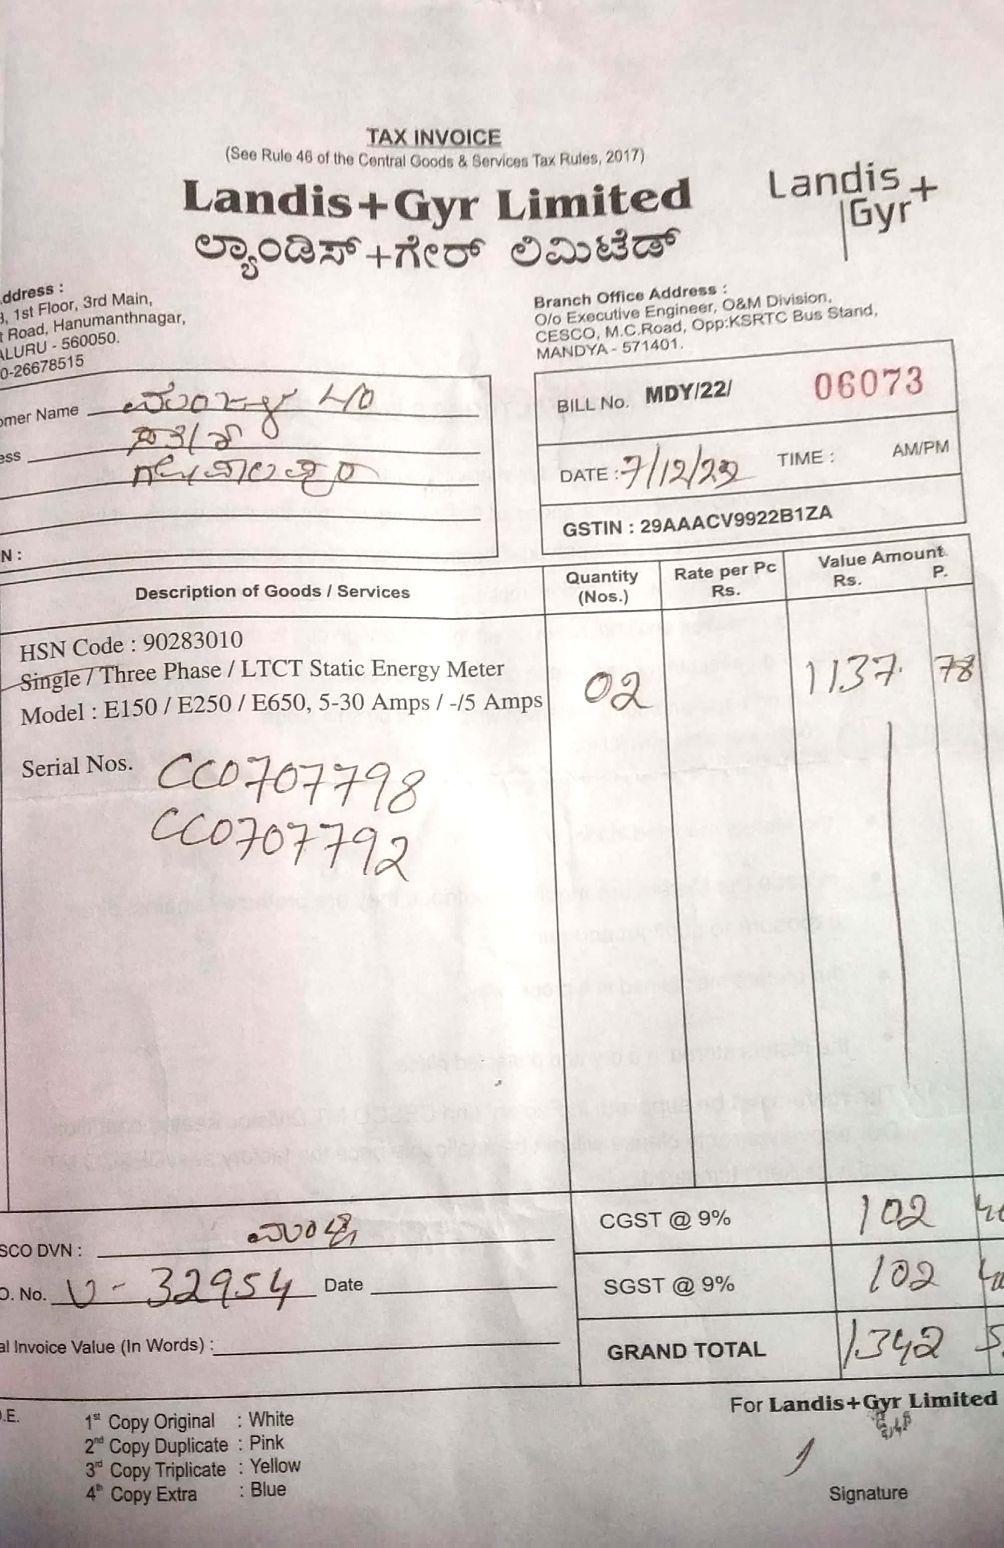 TAX INVOICE
(See Rule 46 of the Central Goods & Services Tax Rules, 2017)
Landis+Gyr Limited
ಲ್ಯಾಂಡಿಸ್+ಗೇರ್ ಲಿಮಿಟೆಡ್
Landis
Gyr+
ddress :
, 1st Floor, 3rd Main,
t Road, Hanumanthnagar,
ALURU - 560050.
0-26678515
Branch Office Address :
O/o Executive Engineer, O&M Division,
CESCO, M.C.Road, Opp:KSRTC Bus Stand,
MANDYA - 571401.
omer Name
ess
N :
BILL No. MDY/22/ 06073
DATE : 7/12/22 TIME : AM/PM
GSTIN : 29AAACV9922B1ZA
Description of Goods / Services Quantity (Nos.) Rate per Pc Rs. Value Amount Rs. P.
HSN Code : 90283010
Single / Three Phase / LTCT Static Energy Meter 02 1137. 78
Model : E150 / E250 / E650, 5-30 Amps / -/5 Amps
Serial Nos. CC0707798
CC0707792
CGST @ 9% 102
SCO DVN :
SGST @ 9% 102
O. No. U - 32954 Date
al Invoice Value (In Words) :
GRAND TOTAL 1342
For Landis+Gyr Limited
.E.
1st Copy Original : White
2nd Copy Duplicate : Pink
3rd Copy Triplicate : Yellow
4th Copy Extra : Blue
Signature